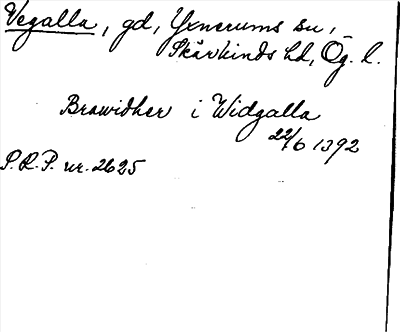 Vegalla, gd, Yxnerums sn,
Skärkinds hd, Ög. l.
Brawidher i Widgalla
22/6 1392
S.R.P. nr. 2625